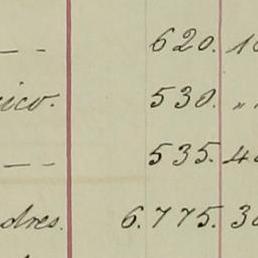 — — 620. 10
ico. 530. „ „
— — 535. 40
dres. 6.775. 30